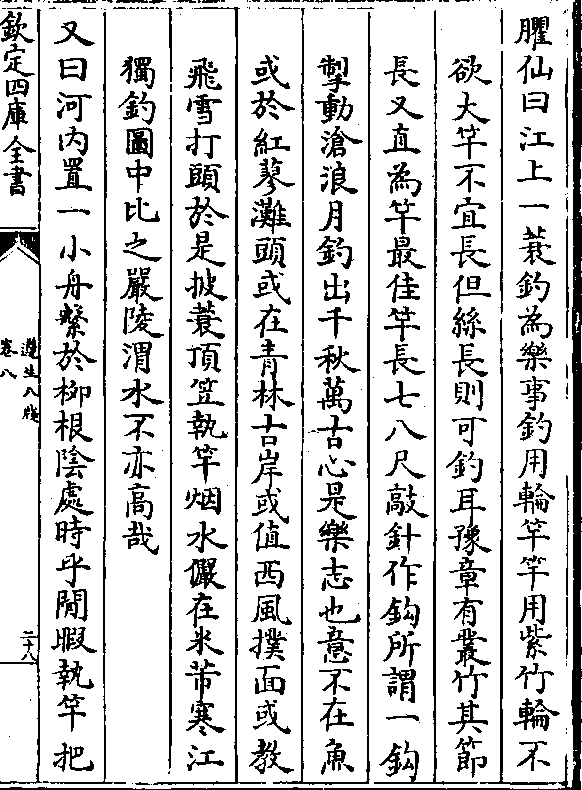 臞仙曰江上一蓑釣為樂事釣用輪竿竿用紫竹輪不
欲大竿不宜長但絲長則可釣耳豫章有叢竹其節
長又直為竿最佳竿長七八尺敲針作鈎所謂一鈎
掣動滄浪月釣出千秋萬古心是樂志也意不在魚
或於紅蓼灘頭或在青林古岸或值西風撲面或教
飛雪打頭於是披蓑頂笠執竿烟水儼在米芾寒江
獨釣圖中比之嚴陵渭水不亦高哉
又曰河内置一小舟繫於柳根陰處時乎閒暇執竿把
欽定四庫全書
遵生八牋
卷八
二十八